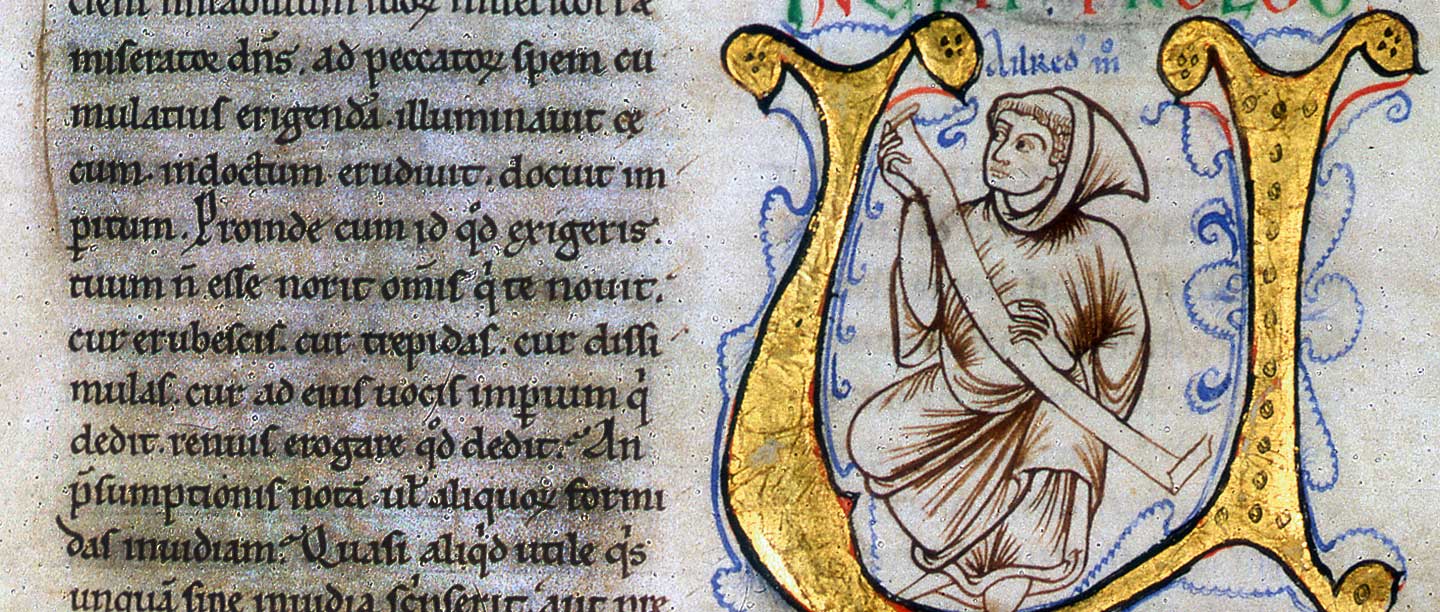 miserator dn̄s. ad peccatoꝝ spem cu
mulatius erigendā. illuminauit ce
cum. indoctum erudiuit. docuit im
ꝑitum. Proinde cum id qd̄ exigeris.
tuum n̄ esse norit omīs qͥ te nouit.
cur erubescis. cur trepidas. cur dissi
mulas. cur ad eius uocis imꝑium qͥ
dedit. renuis erogare qd̄ dedit. An
p̄sumptionis notā. ul̓ aliquoꝝ formi
das inuidiam. Quasi aliqͥd utile qͥs
unquā sine inuidia sc̓pserit. aut
INCIPIT PROLOG
Ailred᾽ m̊